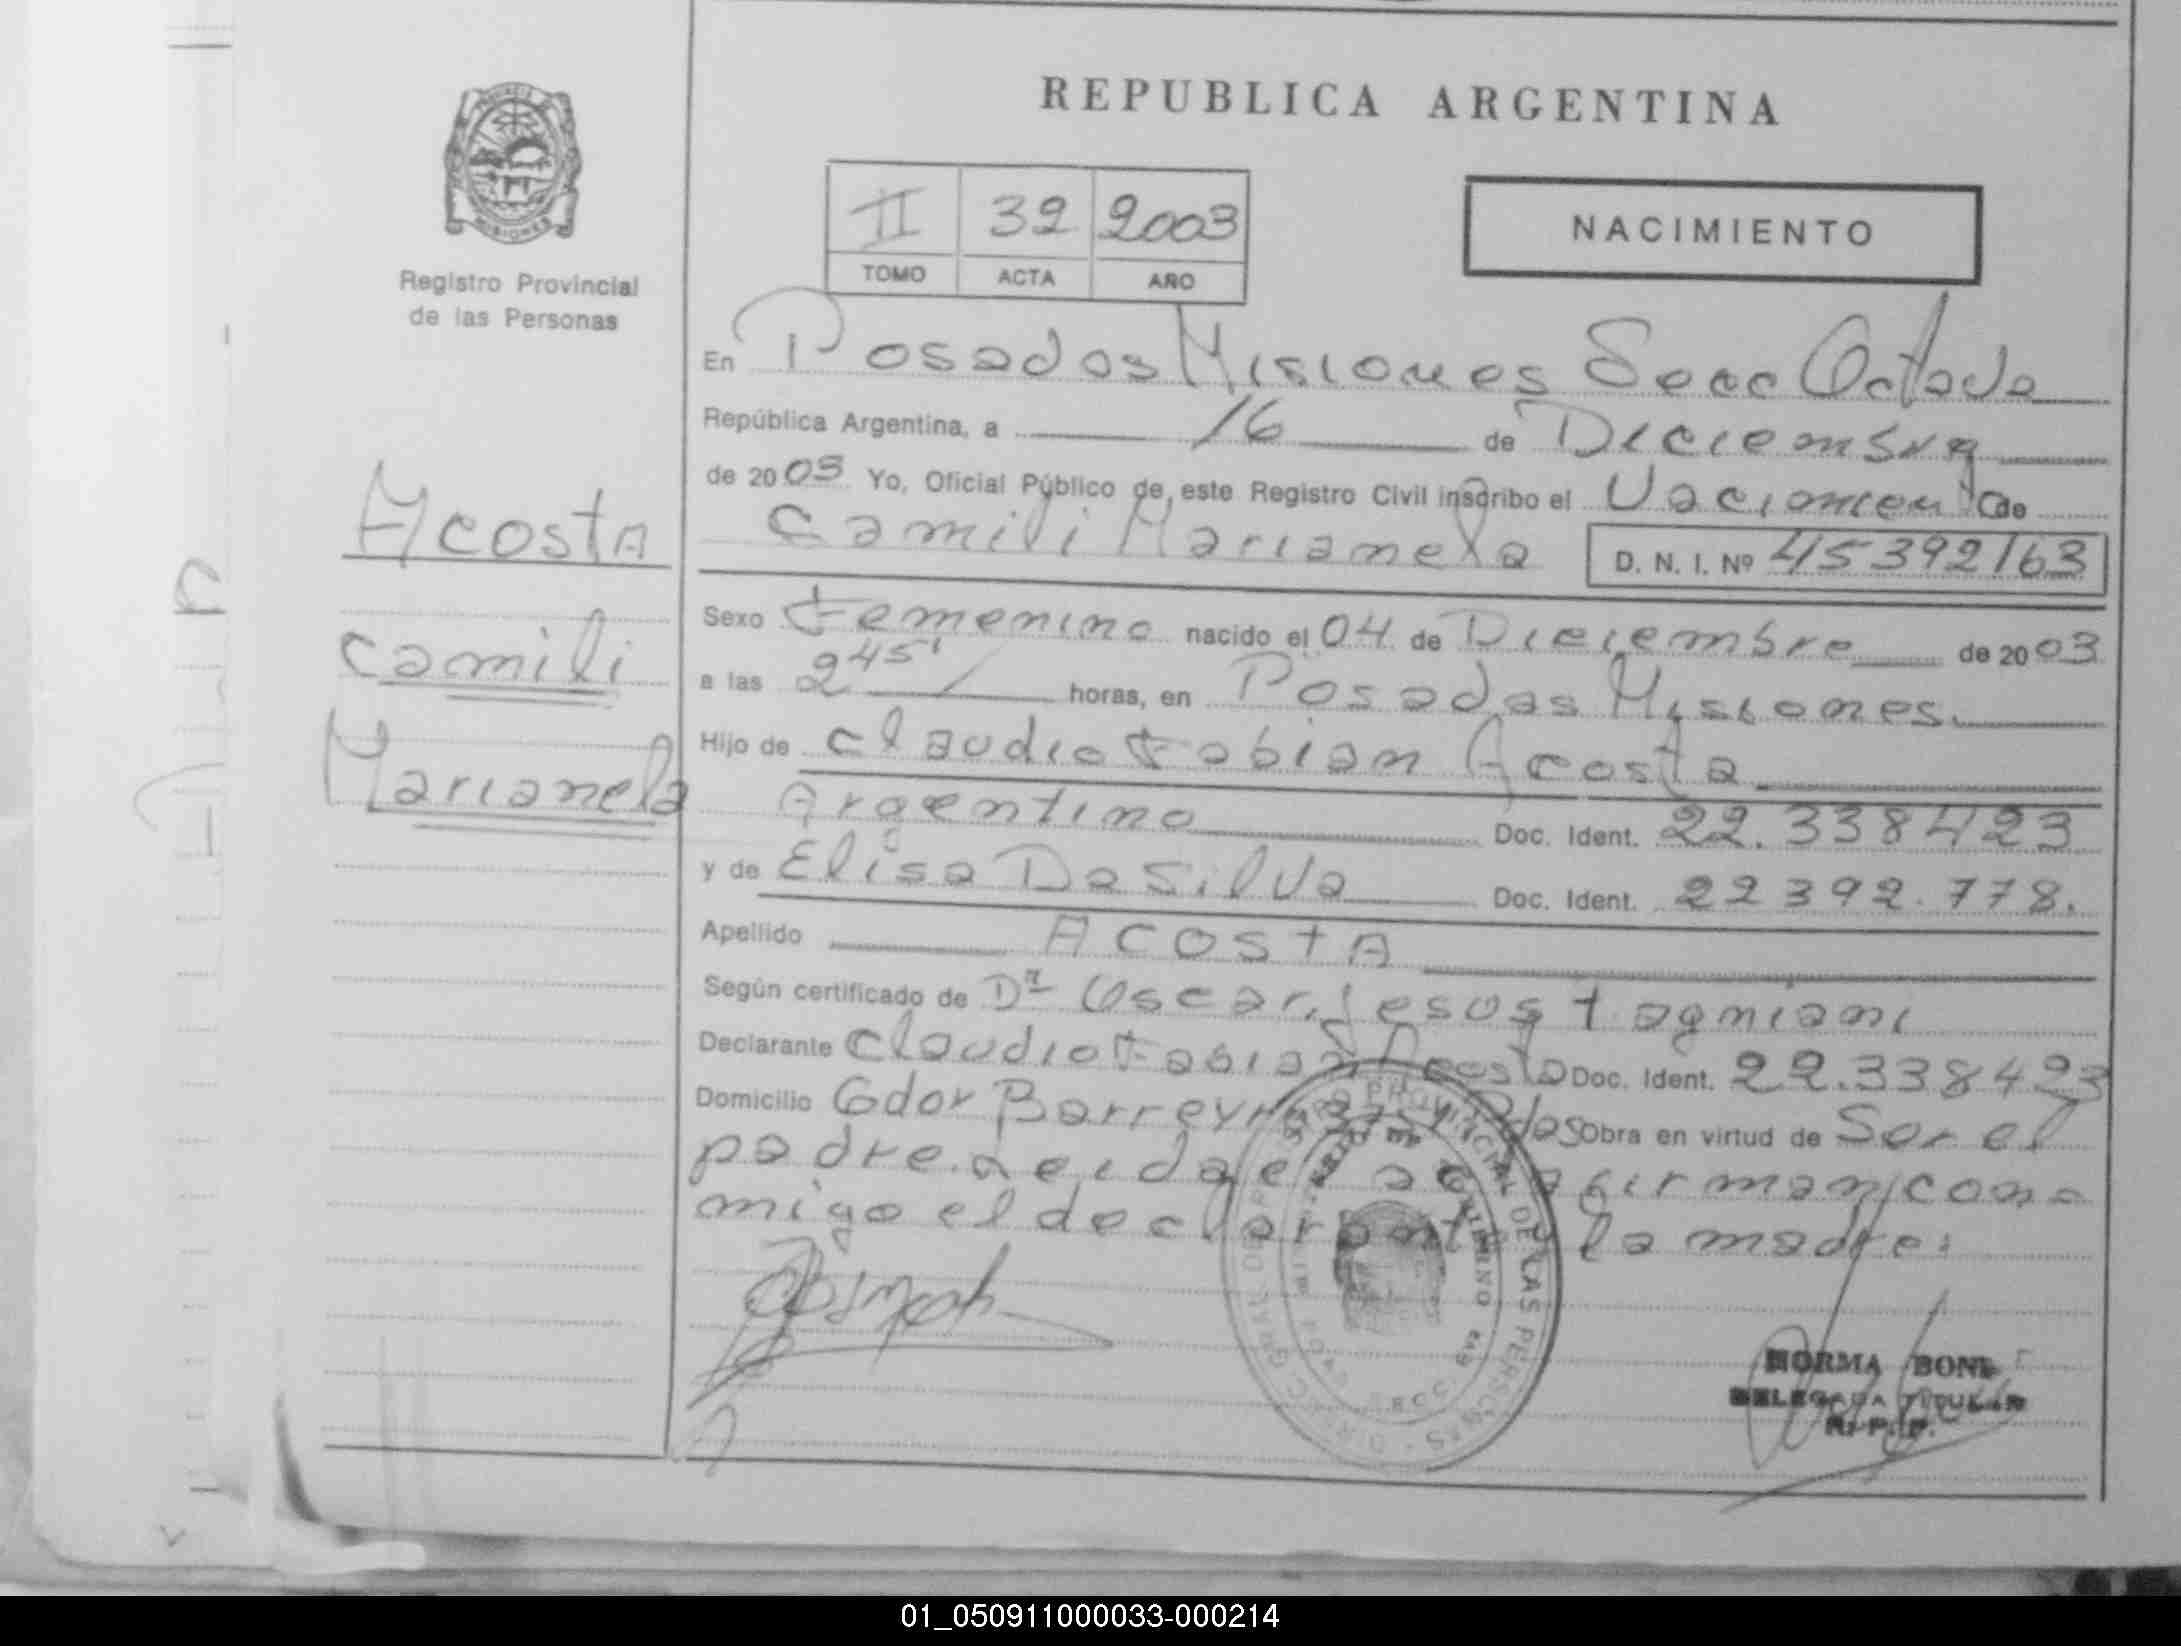 REPUBLICA ARGENTINA
II 32 2003
TOMO ACTA AÑO
NACIMIENTO
MISIONES
Registro Provincial
de las Personas
En Posadas Misiones Secc Octava
República Argentina, a 16 de Diciembre
de 2003 Yo, Oficial Público de este Registro Civil inscribo el Nacimiento de
Camili Marianela D. N. I. Nº 45392163
Acosta
Camili
Marianela
Sexo Femenino nacido el 04 de Diciembre de 2003
a las 2 45' horas, en Posadas Misiones
Hijo de Claudio Fabian Acosta
Argentino Doc. Ident. 22.338423
y de Elisa Da Silva Doc. Ident. 22 392.778.
Apellido ACOSTA
Según certificado de Dr Oscar Jesus Tagniani
Declarante Claudio Fabian Acosta Doc. Ident. 22.338423
Domicilio Gdor Barreyro Pdas Obra en virtud de Ser el
padre. Leida el firman con
migo el declarante la madre.
NORMA BONE
DELEGADA TITULAR
R. P. P.
01_050911000033-000214